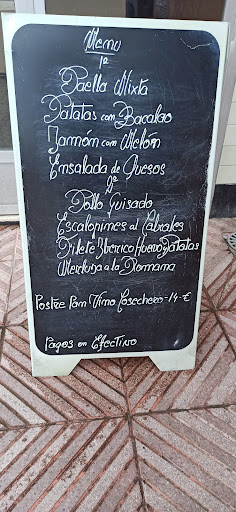 Menu
1º
Paella Mixta
Patatas con Bacalao
Jamón con Melón
Ensalada de Quesos
2º
Pollo Guisado
Escalopines al Cabrales
Filete Iberico Huevo Patatas
Merluza a la Romana
Postre Pan Vino Cosechero-14-€
Pagos en Efectivo